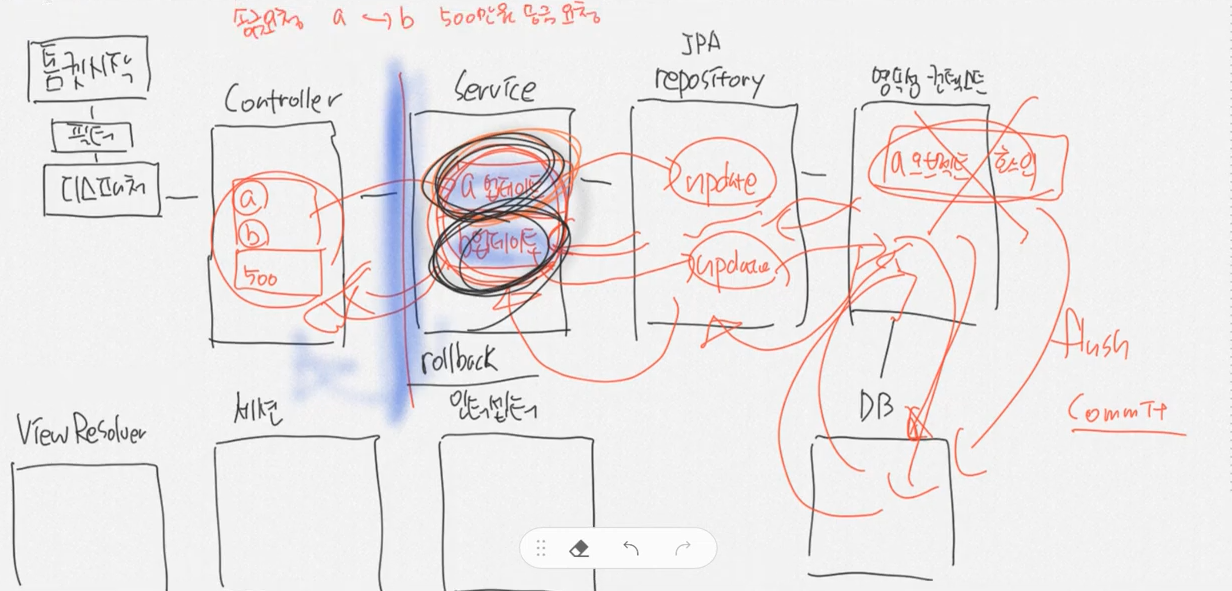 송금요청 a → b 500만원 송금 요청
톰캣시작
필터
디스패처
Controller
a
b
500
Service
a 업데이트
b 업데이트
rollback
JPA
repository
update
update
영속성 컨텍스트
a 오브젝트 홍길인
flush
Commit
DB
ViewResolver
세션
인터셉터